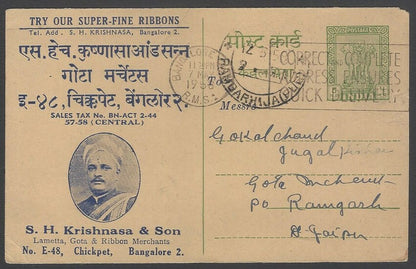 TRY OUR SUPER-FINE RIBBONS
Tel. Add. S. H. KRISHNASA, Bangalore 2.
एस. हेच. कृष्णासा आंड सन्न
गोटा मर्चेंटस
इ-४८, चिक्कपेट, बेंगलोर २.
SALES TAX No. BN-ACT 2-44
57-58 (CENTRAL)
S. H. Krishnasa & Son
Lametta, Gota & Ribbon Merchants
No. E-48, Chickpet, Bangalore 2.
पोस्ट कार्ड
BANGALORE
R.M.S.
CORRECT COMPLETE
ADDRESS ENSURES
QUICK DELIVERY
To
Messrs
Gokalchand
Jugal Kishore
Gota Merchant
PO Ramgarh
Dt Jaipur